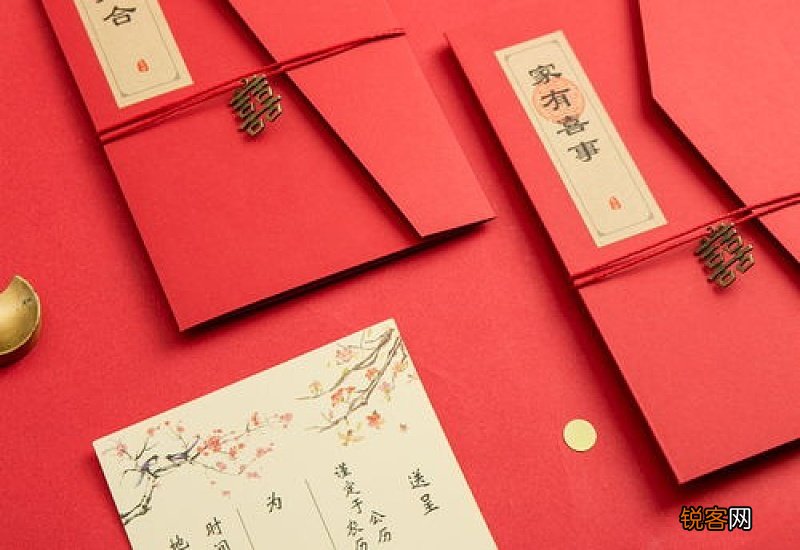 合
囍
家有喜事
囍
送呈
谨定于
公历
农历
为
时间
地
锐客网